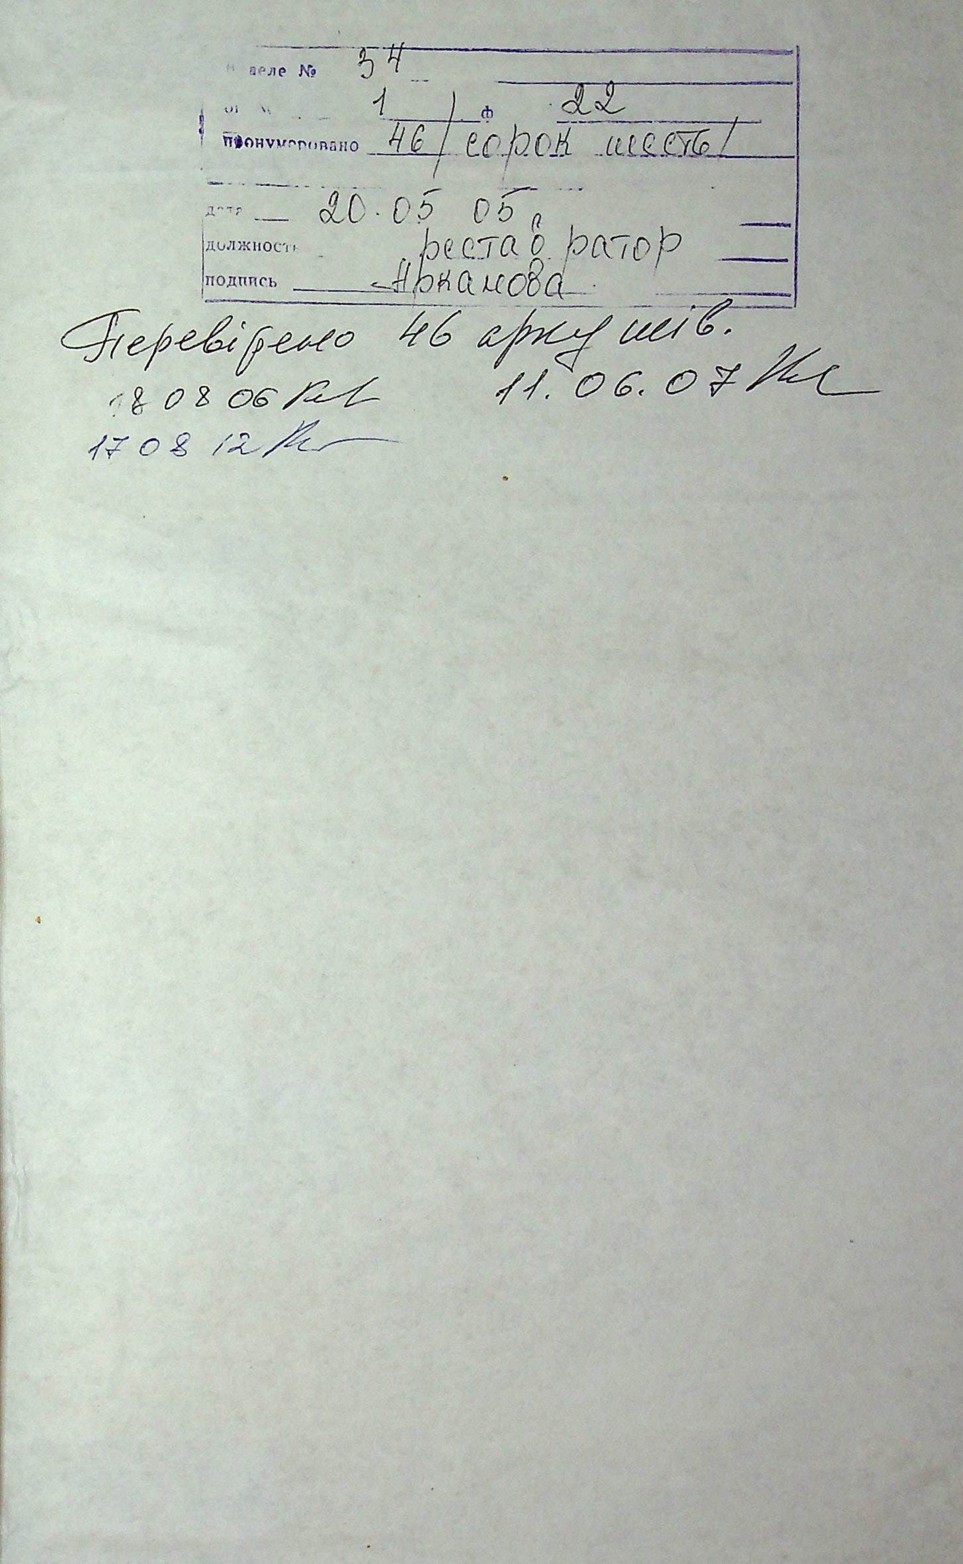 деле № 54
1 ф 22
пронумеровано 46 /сорок шесть/
дата 20.05 05
должность реставратор
подпись
Перевірено 46 аркушів.
18 08 06 11.06.07
17 08 12